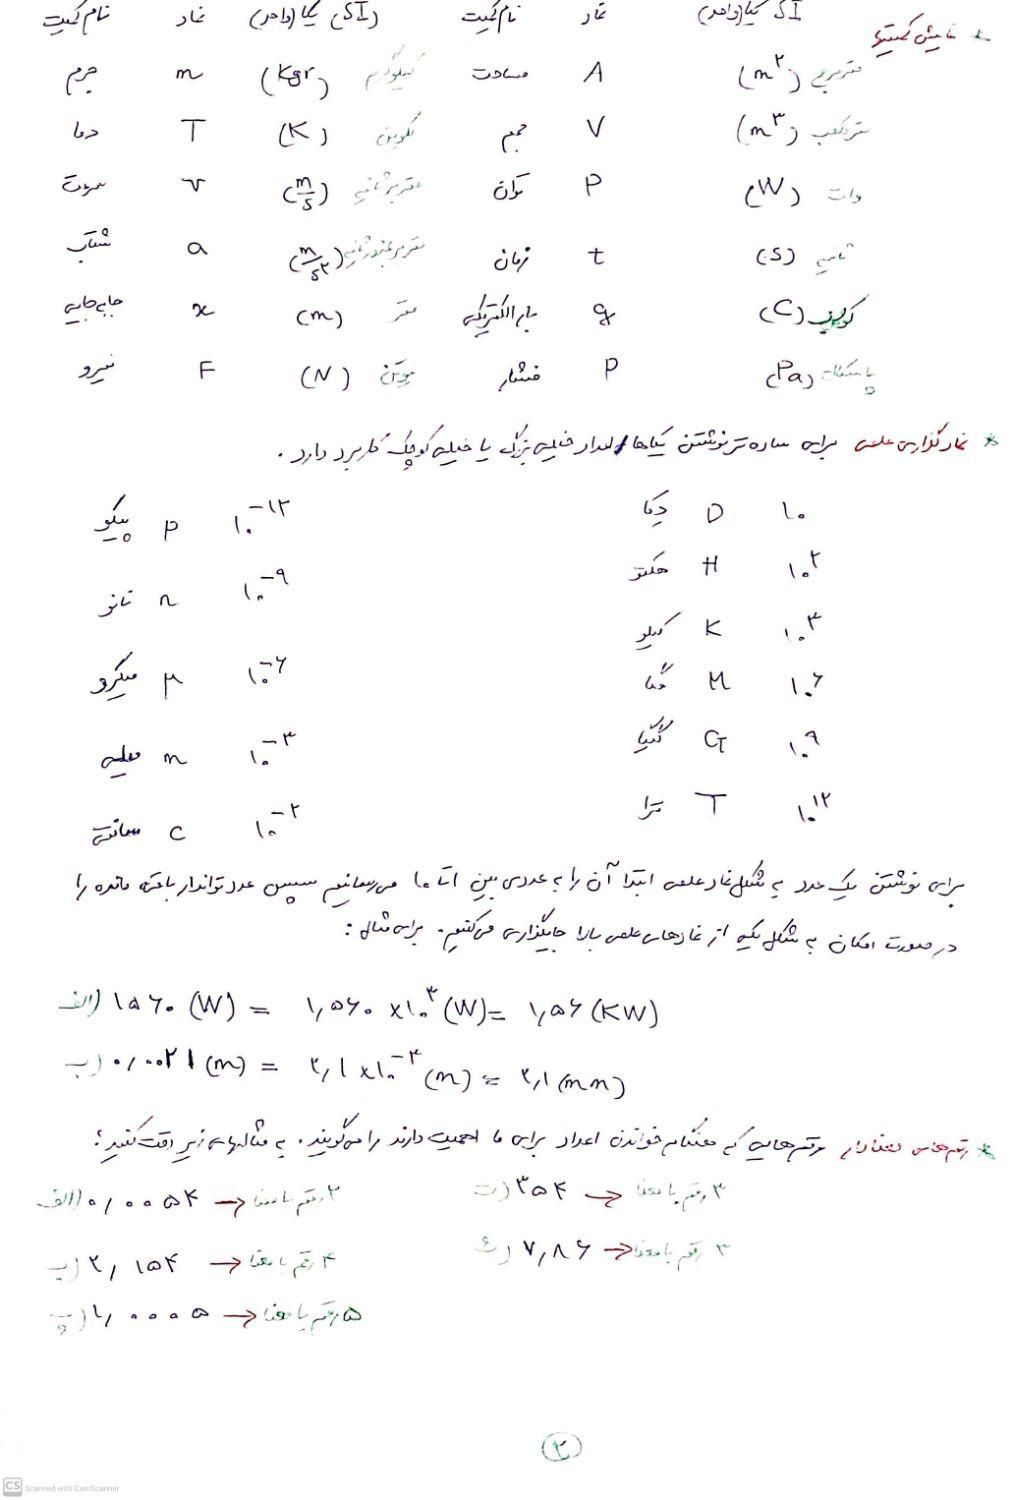 * نمایش کمیتها
نام کمیت نماد یکا(واحد) (SI نام کمیت نماد یکا(واحد) SI
جرم m (Kgr) کیلوگرم مساحت A (m²) مترمربع
دما T (K) کلوین حجم V (m³) مترمکعب
سرعت v (m/s) متربرثانیه توان P (W) وات
شتاب a (m/s²) متربرمجذورثانیه زمان t (s) ثانیه
جابه‌جایی x (m) متر بار الکتریکی q (C) کولن
نیرو F (N) نیوتن فشار P (Pa) پاسکال
* نمادگذاری علمی برای ساده تر نوشتن یکاها/اعداد خیلی بزرگ یا خیلی کوچک کاربرد دارد.
۱۰ D دکا
۱۰^۲ H هکتو
۱۰^۳ K کیلو
۱۰^۶ M مگا
۱۰^۹ G گیگا
۱۰^۱۲ T ترا
پیکو p ۱۰^-۱۲
نانو n ۱۰^-۹
میکرو μ ۱۰^-۶
میلی m ۱۰^-۳
سانتی c ۱۰^-۲
برای نوشتن یک عدد به شکل نماد علمی ابتدا آن را به عددی بین ۱ تا ۱۰ می‌رسانیم سپس عدد تواندار باقی مانده را
در صورت امکان به شکل یکی از نمادهای علمی بالا جایگذاری می‌کنیم. برای مثال:
الف) ۱۵۶۰ (W) = ۱,۵۶۰ × ۱۰^۳ (W) = ۱,۵۶ (KW)
ب) ۰,۰۰۲۱ (m) = ۲,۱ × ۱۰^-۳ (m) = ۲,۱ (mm)
* رقم‌های معنادار رقم‌هایی که هنگام خواندن اعداد برای ما اهمیت دارند را می‌گویند. به مثالهای زیر دقت کنید:
الف) ۰,۰۰۵۴ → ۲ رقم با معنا
ب) ۲,۱۵۴ → ۴ رقم با معنا
پ) ۱,۰۰۰۵ → ۵ رقم با معنا
ت) ۳۵۴ → ۳ رقم با معنا
ث) ۷,۸۶ → ۳ رقم با معنا
۲
CS Scanned with CamScanner